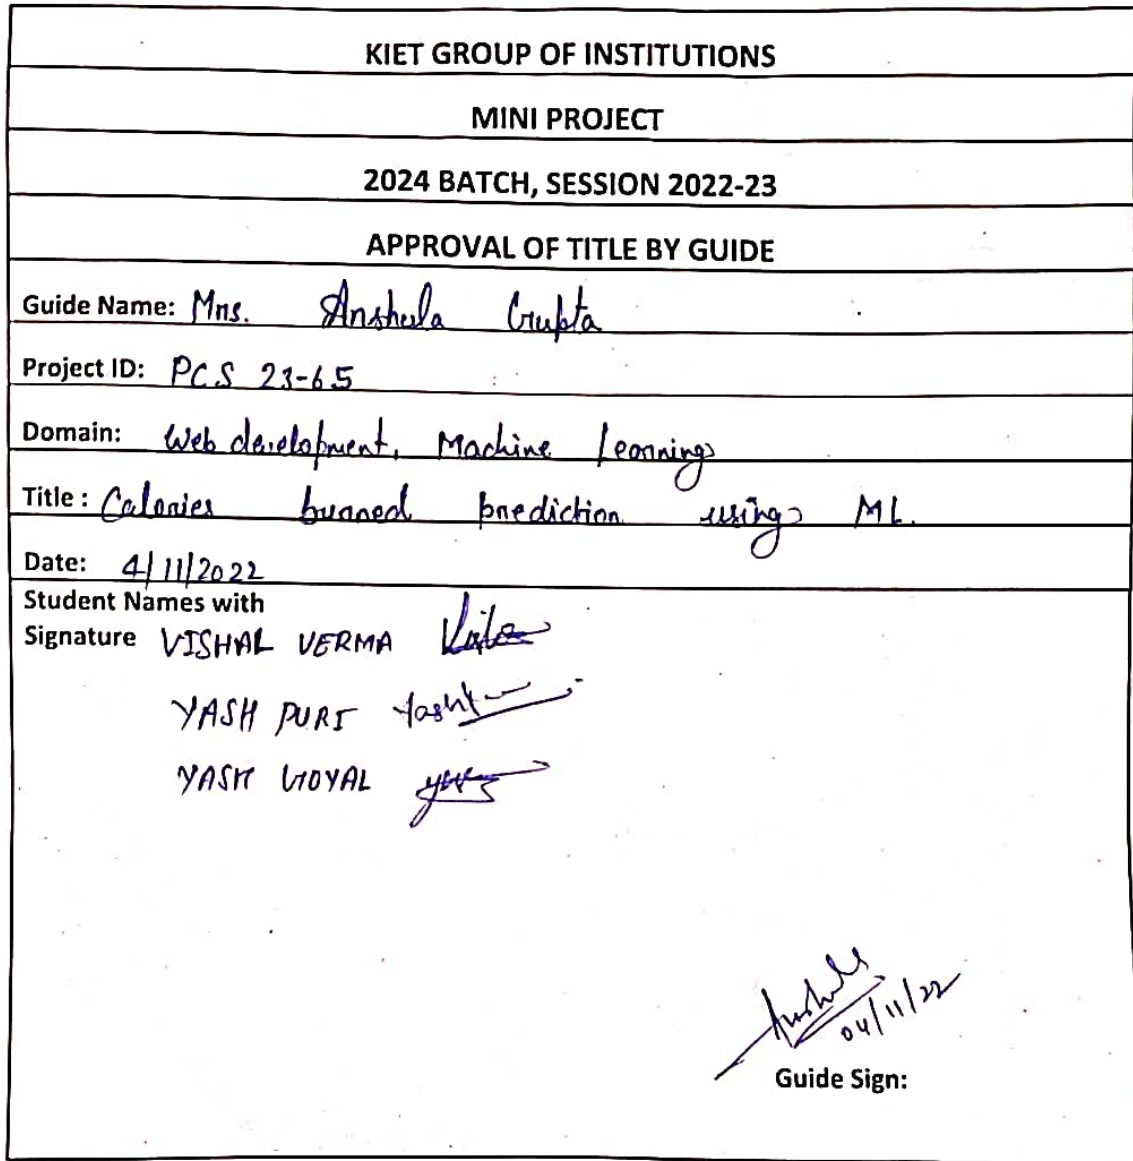 KIET GROUP OF INSTITUTIONS
MINI PROJECT
2024 BATCH, SESSION 2022-23
APPROVAL OF TITLE BY GUIDE
Guide Name: Mrs. Anshula Gupta
Project ID: PCS 23-65
Domain: Web development, Machine Learning
Title : Calories burned prediction using ML.
Date: 4/11/2022
Student Names with
Signature VISHAL VERMA
YASH PURI Yash
YASH GOYAL
04/11/22
Guide Sign: